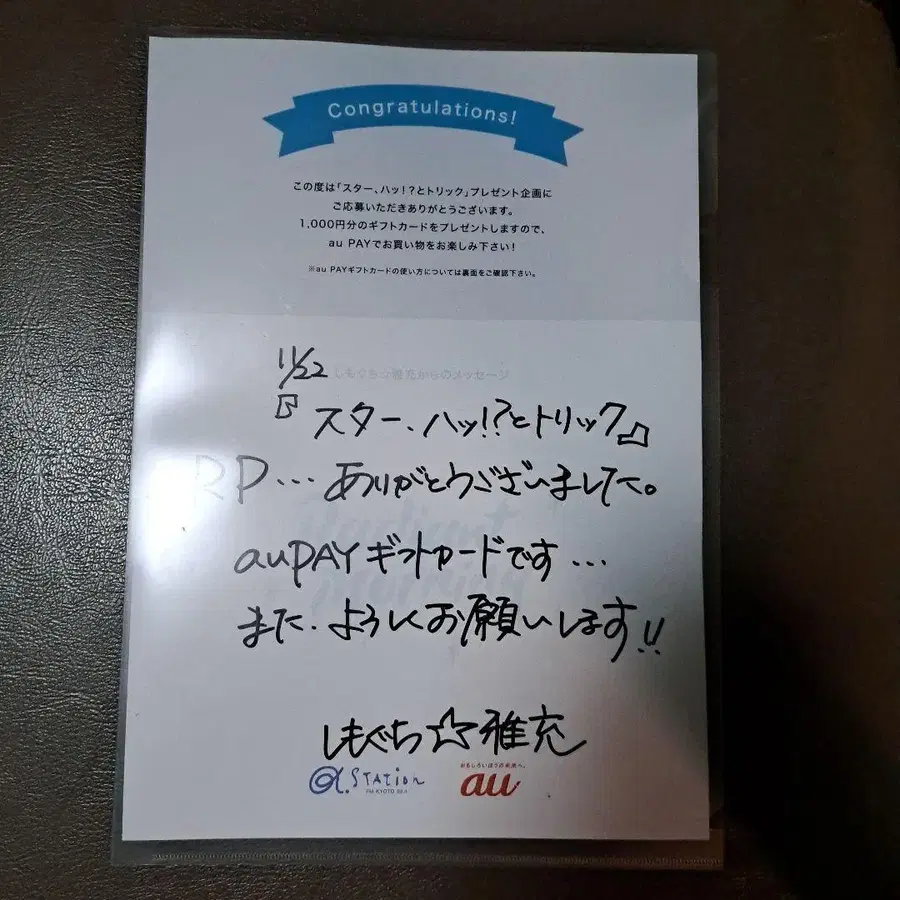 Congratulations!
この度は「スター、ハッ!?とトリック」プレゼント企画に
ご応募いただきありがとうございます。
1,000円分のギフトカードをプレゼントしますので、
au PAYでお買い物をお楽しみ下さい!
※au PAYギフトカードの使い方については裏面をご確認下さい。
11/22
しもぐち☆雅充からのメッセージ
『スター、ハッ!?とトリック』
RP…ありがとうございました。
auPAYギフトカードです…
また、よろしくお願いします!!
しもぐち☆雅充
α-STATION
FM KYOTO 89.4
おもしろいほうの未来へ。
au